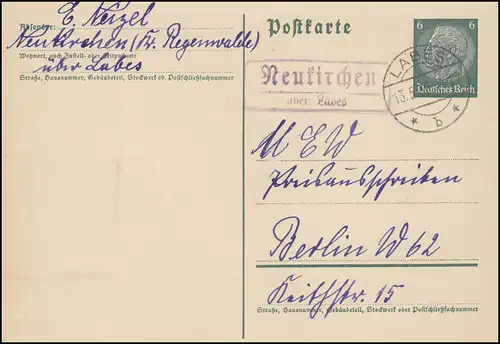 Absender: E. Neizel
Neukirchen (Kr. Regenwalde)
Wohnort, auch Zustell- oder Leitpostamt
über Labes
Straße, Hausnummer, Gebäudeteil, Stockwerk od. Postschließfachnummer
Postkarte
6 6
Deutsches Reich
LABES
13.5
* b *
Neukirchen
über Labes
MEW
Preisausschreiben
Berlin W 62
Keithstr. 15
Straße, Hausnummer, Gebäudeteil, Stockwerk oder Postschließfachnummer